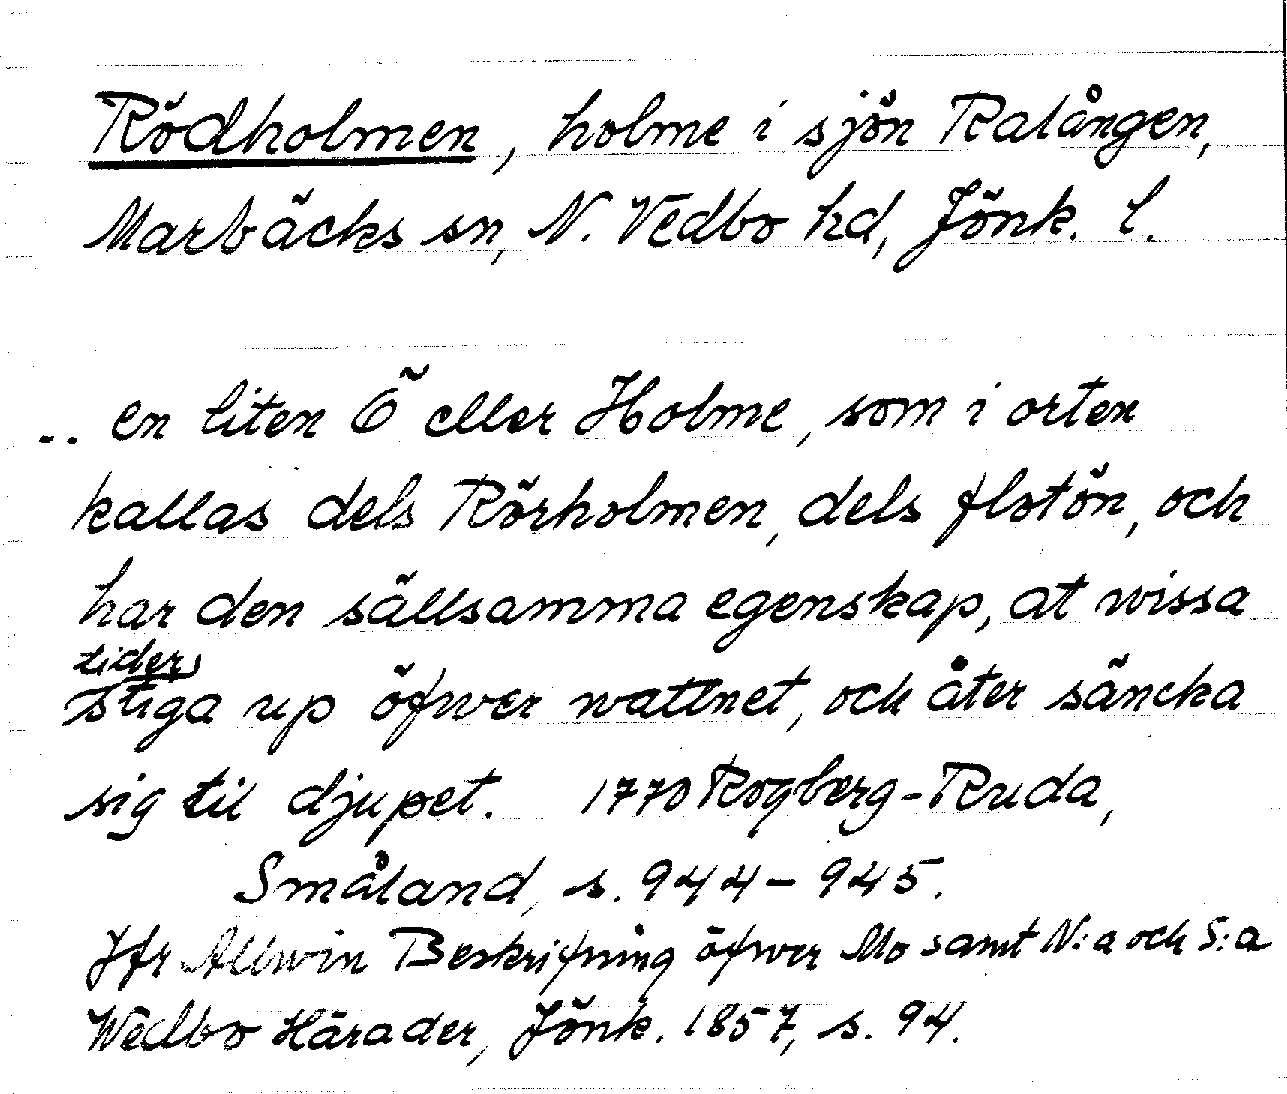 Rödholmen, holme i sjön Ralången,
Marbäcks sn, N. Vedbo hd, Jönk. l.
.. en liten Ö eller Holme, som i orten
kallas dels Rörholmen, dels flotön, och
har den sällsamma egenskap, at wissa
tider
stiga up öfwer wattnet, och åter säncka
sig til djupet. 1770 Rogberg-Ruda,
Småland, s. 944-945.
Jfr Allwin Beskrifning öfwer Mo samt N:a och S:a
Wedbo Härader, Jönk. 1857, s. 94.